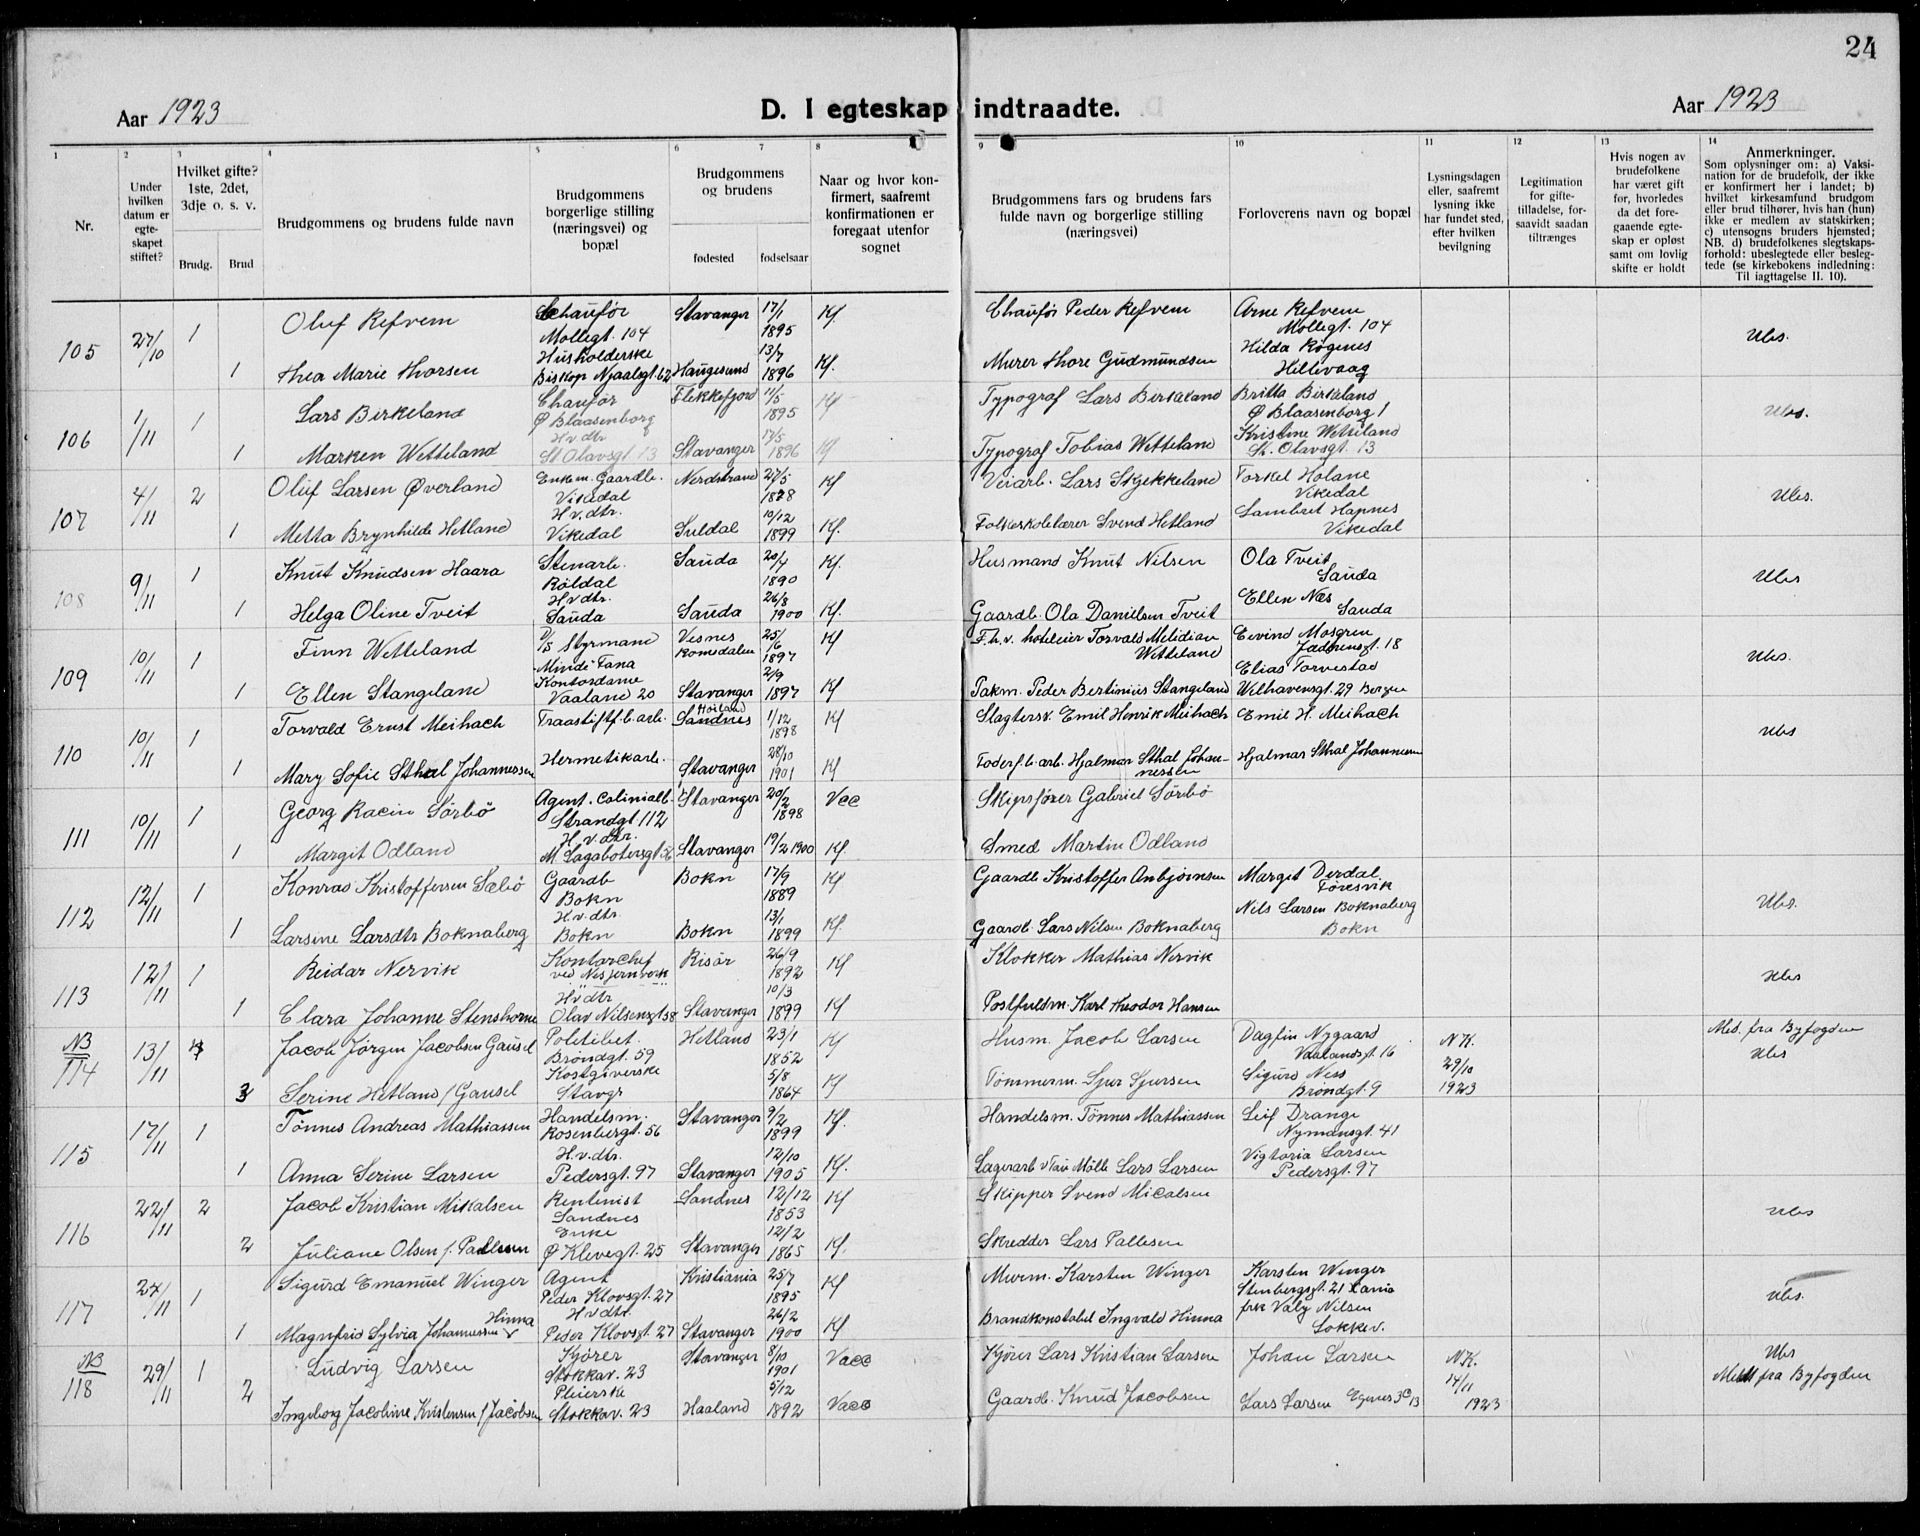 24
Aar 1923
D. I egteskap indtraadte.
Aar 1923
1 2 3 4 5 6 7 8 9 10 11 12 13 14
Nr.
Under hvilken datum er egte- skapet stiftet?
Hvilket gifte? 1ste, 2det, 3dje o. s. v.
Brudg. Brud
Brudgommens og brudens fulde navn
Brudgommens borgerlige stilling (næringsvei) og bopæl
Brudgommens og brudens
fødested fødselsaar
Naar og hvor kon- firmert, saafremt konfirmationen er foregaat utenfor sognet
Brudgommens fars og brudens fars fulde navn og borgerlige stilling (næringsvei)
Forloverens navn og bopæl
Lysningsdagen eller, saafremt lysning ikke har fundet sted, efter hvilken bevilgning
Legitimation for gifte- tilladelse, for- saavidt saadan tiltrænges
Hvis nogen av brudefolkene har været gift før, hvorledes da det fore- gaaende egte- skap er opløst samt om lovlig skifte er holdt
Anmerkninger.
Som oplysninger om: a) Vaksi- nation for de brudefolk, der ikke er konfirmert her i landet; b) hvilket kirkesamfund brudgom eller brud tilhører, hvis han (hun) ikke er medlem av statskirken; c) utensogns bruders hjemsted; NB. d) brudefolkenes slegtskaps- forhold: ubeslegtede eller besleg- tede (se kirkebokens indledning: Til iagttagelse II. 10).
105 27/10 1 Oluf Refvem Chauffør Møllegt. 104 Stavanger 17/1 1895 Kf. Chauffør Peder Refvem Arne Refvem Møllegt. 104 Ubs.
1 Thea Marie Thorsen Husholderske Biskop Njaalsgt. 62 Haugesund 13/7 1896 Kf. Murer Thore Gudmundsen Hilda Røgenes Hillevaag
106 1/11 1 Lars Birkeland Chauffør Ø Blaasenborg Flekkefjord 11/5 1895 Kf Typograf Lars Birkeland Britta Birkeland Ø Blaasenborg 1 Ubs.
1 Marken Wetteland Hv dtr St Olavsgt. 13 Stavanger 17/5 1896 Kf Typograf Tobias Wetteland Kristine Wetteland St. Olavsgt. 13
107 4/11 2 Oluf Larsen Øverland Enkem. Gaardbr. Vikedal Nerdstrand 27/5 1878 Kf Veiarb. Lars Skjekkeland Torkel Holane Vikedal Ubs.
1 Metta Brynhilde Hetland H.v.dtr. Vikedal Suldal 10/12 1899 Kf. Folkeskolelærer Svend Hetland Lambret Hapnes Vikedal
108 9/11 1 Knut Knudsen Haara Stenarb. Røldal Sauda 20/4 1890 Kf. Husmand Knut Nilsen Ola Tveit Sauda Ubs
1 Helga Oline Tveit H.v.dtr. Sauda Sauda 26/8 1900 Kf. Gaardb. Ola Danielsen Tveit Ellen Næs Sauda
109 10/11 1 Finn Wetteland D/S Styrmand Minde Fana Vesnes Romsdalen 25/6 1897 Kf F.h.v. hoteleier Torvald Melidian Wetteland Eivind Mosgren Jædrensgt. 18 Ubs.
1 Ellen Stangeland Kontordame Vaaland 20 Stavanger 2/9 1897 Kf Pakm. Peder Bertinius Stangeland Elias Torvestad Welhavensgt. 29 Bergen
110 10/11 1 Torvald Ernst Meihach Traastiftf.b. arb. Høiland Sandnes 1/12 1898 Kf Slagtersv. Emil Henrik Meihach Emil H. Meihach Ubs
1 Mary Sofie Sthal Johannessen Hermetikarb. Stavanger 28/10 1901 Kf Foderf.b. arb. Hjalmar Sthal Johan- nessen Hjalmar Sthal Johannessen
111 10/11 1 Georg Racin Sørbø Agent. Colinialb. Strandgt 112 Stavanger 20/2 1898 Vcc Skipsfører Gabriel Sørbø
1 Margit Odland H.v.dtr. M. Lagabøtersgt 56 Stavanger 19/2 1900 Kf. Smed Martin Odland
112 12/11 1 Konrad Kristoffersen Sæbø Gaardb Bokn Bokn 17/9 1889 Kf Gaardb Kristoffer Anbjørnsen Margit Dørdal Føresvik Ubs.
1 Larsine Larsdtr Boknaberg H.v.dtr. Bokn Bokn 13/1 1899 Kf. Gaardb. Lars Nilsen Boknaberg Nils Larsen Boknaberg Bokn
113 12/11 1 Reidar Nervik Kontorchef ved Nes jernverk Risør 26/9 1892 Kf Klokker Mathias Nervik Ubs
1 Clara Johanne Stenshorne Hv dtr Olav Nilsensgt 38 Stavanger 10/3 1899 Kf Postfuldm. Karl Theodor Hansen
NB 114 13/11 Jacob Jørgen Jacobsen Gausel Politibet. Brøndgt. 59 Hetland 23/1 1852 Kf Husm. Jacob Larsen Dagfin Nygaard Vaalandsgt. 16 N.K. 29/10 1923 Med. fra Byfogden Ubs
3 Serine Hetland f Gausel Kostgiverske Stavgr 5/8 1864 Kf Tømmerm. Sjur Sjursen Sigurd Ness Brøndgt. 9
115 17/11 1 Tønnes Andreas Mathiassen Handelsm. Rosenbergt. 56 Stavanger 9/2 1899 Kf. Handelsm. Tønnes Mathiassen Leif Drange Nymansgt. 41
1 Anna Serine Larsen H.v.dtr. Pedersgt. 97 Stavanger 12/10 1905 Kf. Lagerarb v Tau Mølle Lars Larsen Vigtoria Larsen Pedersgt. 97
116 22/11 2 Jacob Kristian Mikalsen Rentenist Sandnes Sandnes 12/12 1853 Kf Skipper Svend Micalsen Ubs
2 Juliane Olsen f. Pallesen Enke Ø Klevegt. 25 Stavanger 12/2 1865 Kf. Skredder Lars Pallesen
117 24/11 1 Sigurd Emanuel Winger Agent Peder Klovsgt. 27 Kristiania 25/7 1895 Kf Murm. Karsten Winger Karsten Winger Stenbergsgt. 21 Xania Ubs.
1 Magnfrid Sylvia Johannessen Hinna Hv dtr. Peder Klovsgt. 27 Stavanger 26/2 1900 Kf Brandkonstabel Ingvald Hinna frk Valy Nilsen Lokkev.
NB 118 29/11 1 Ludvig Larsen Kjører Stokkav. 23 Stavanger 8/10 1901 Vacc Kjører Lars Kristian Larsen Johan Larsen N.K. 14/11 1923 Ubs Medd fra Byfogden
2 Ingeborg Jacobine Kristensen f Jacobsen Pleierske Stokkav. 23 Haaland 5/12 1892 Vacc Gaardb. Knud Jacobsen Lars Larsen Egenes 3 C 13